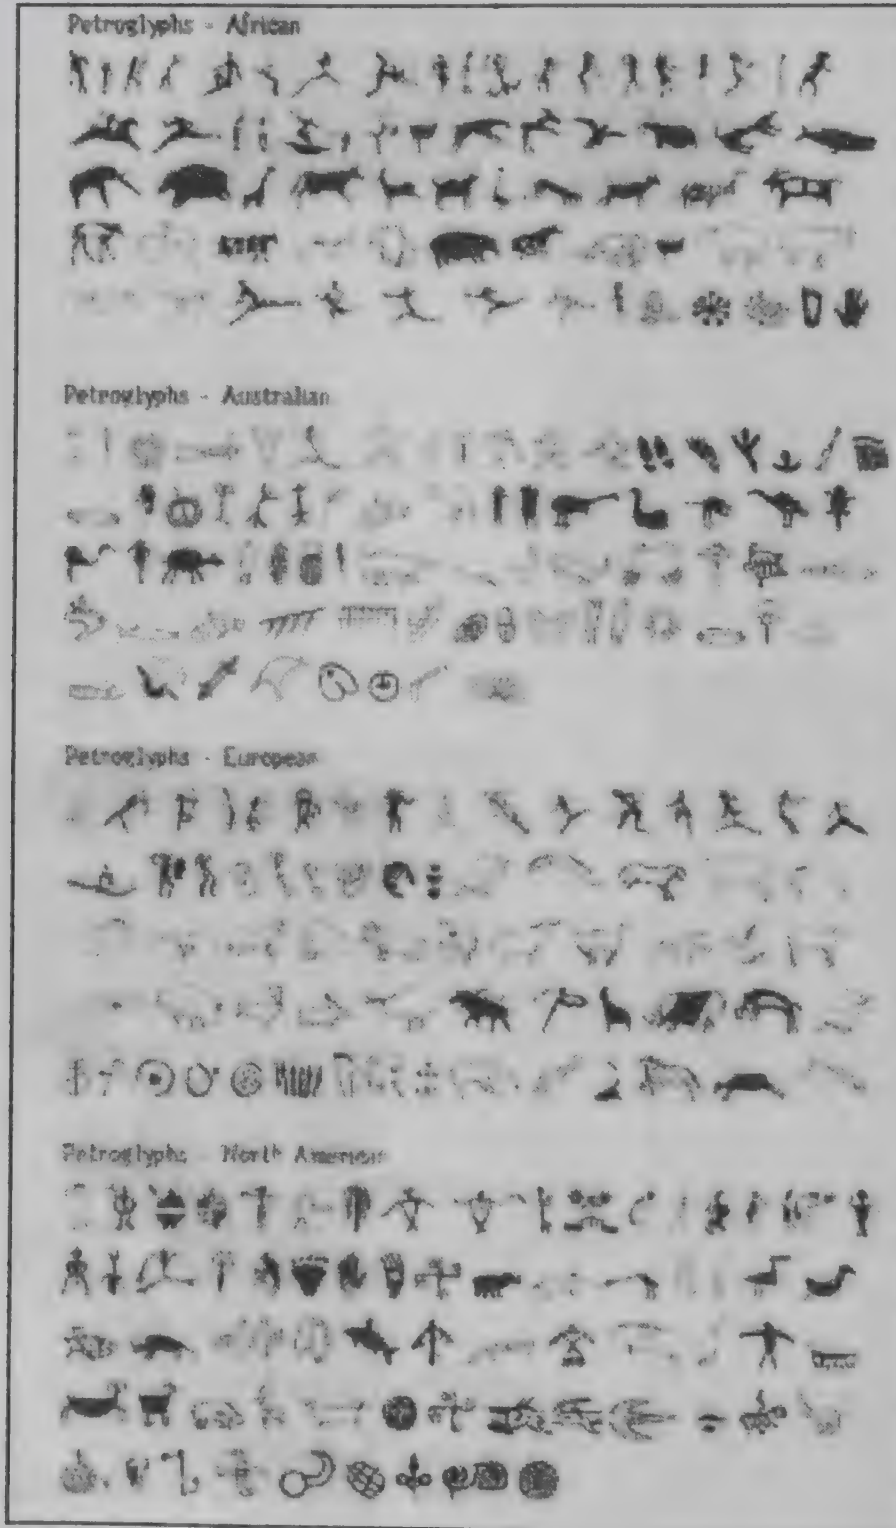 Petroglyphs - African
Petroglyphs - Australian
Petroglyphs - European
Petroglyphs - North American